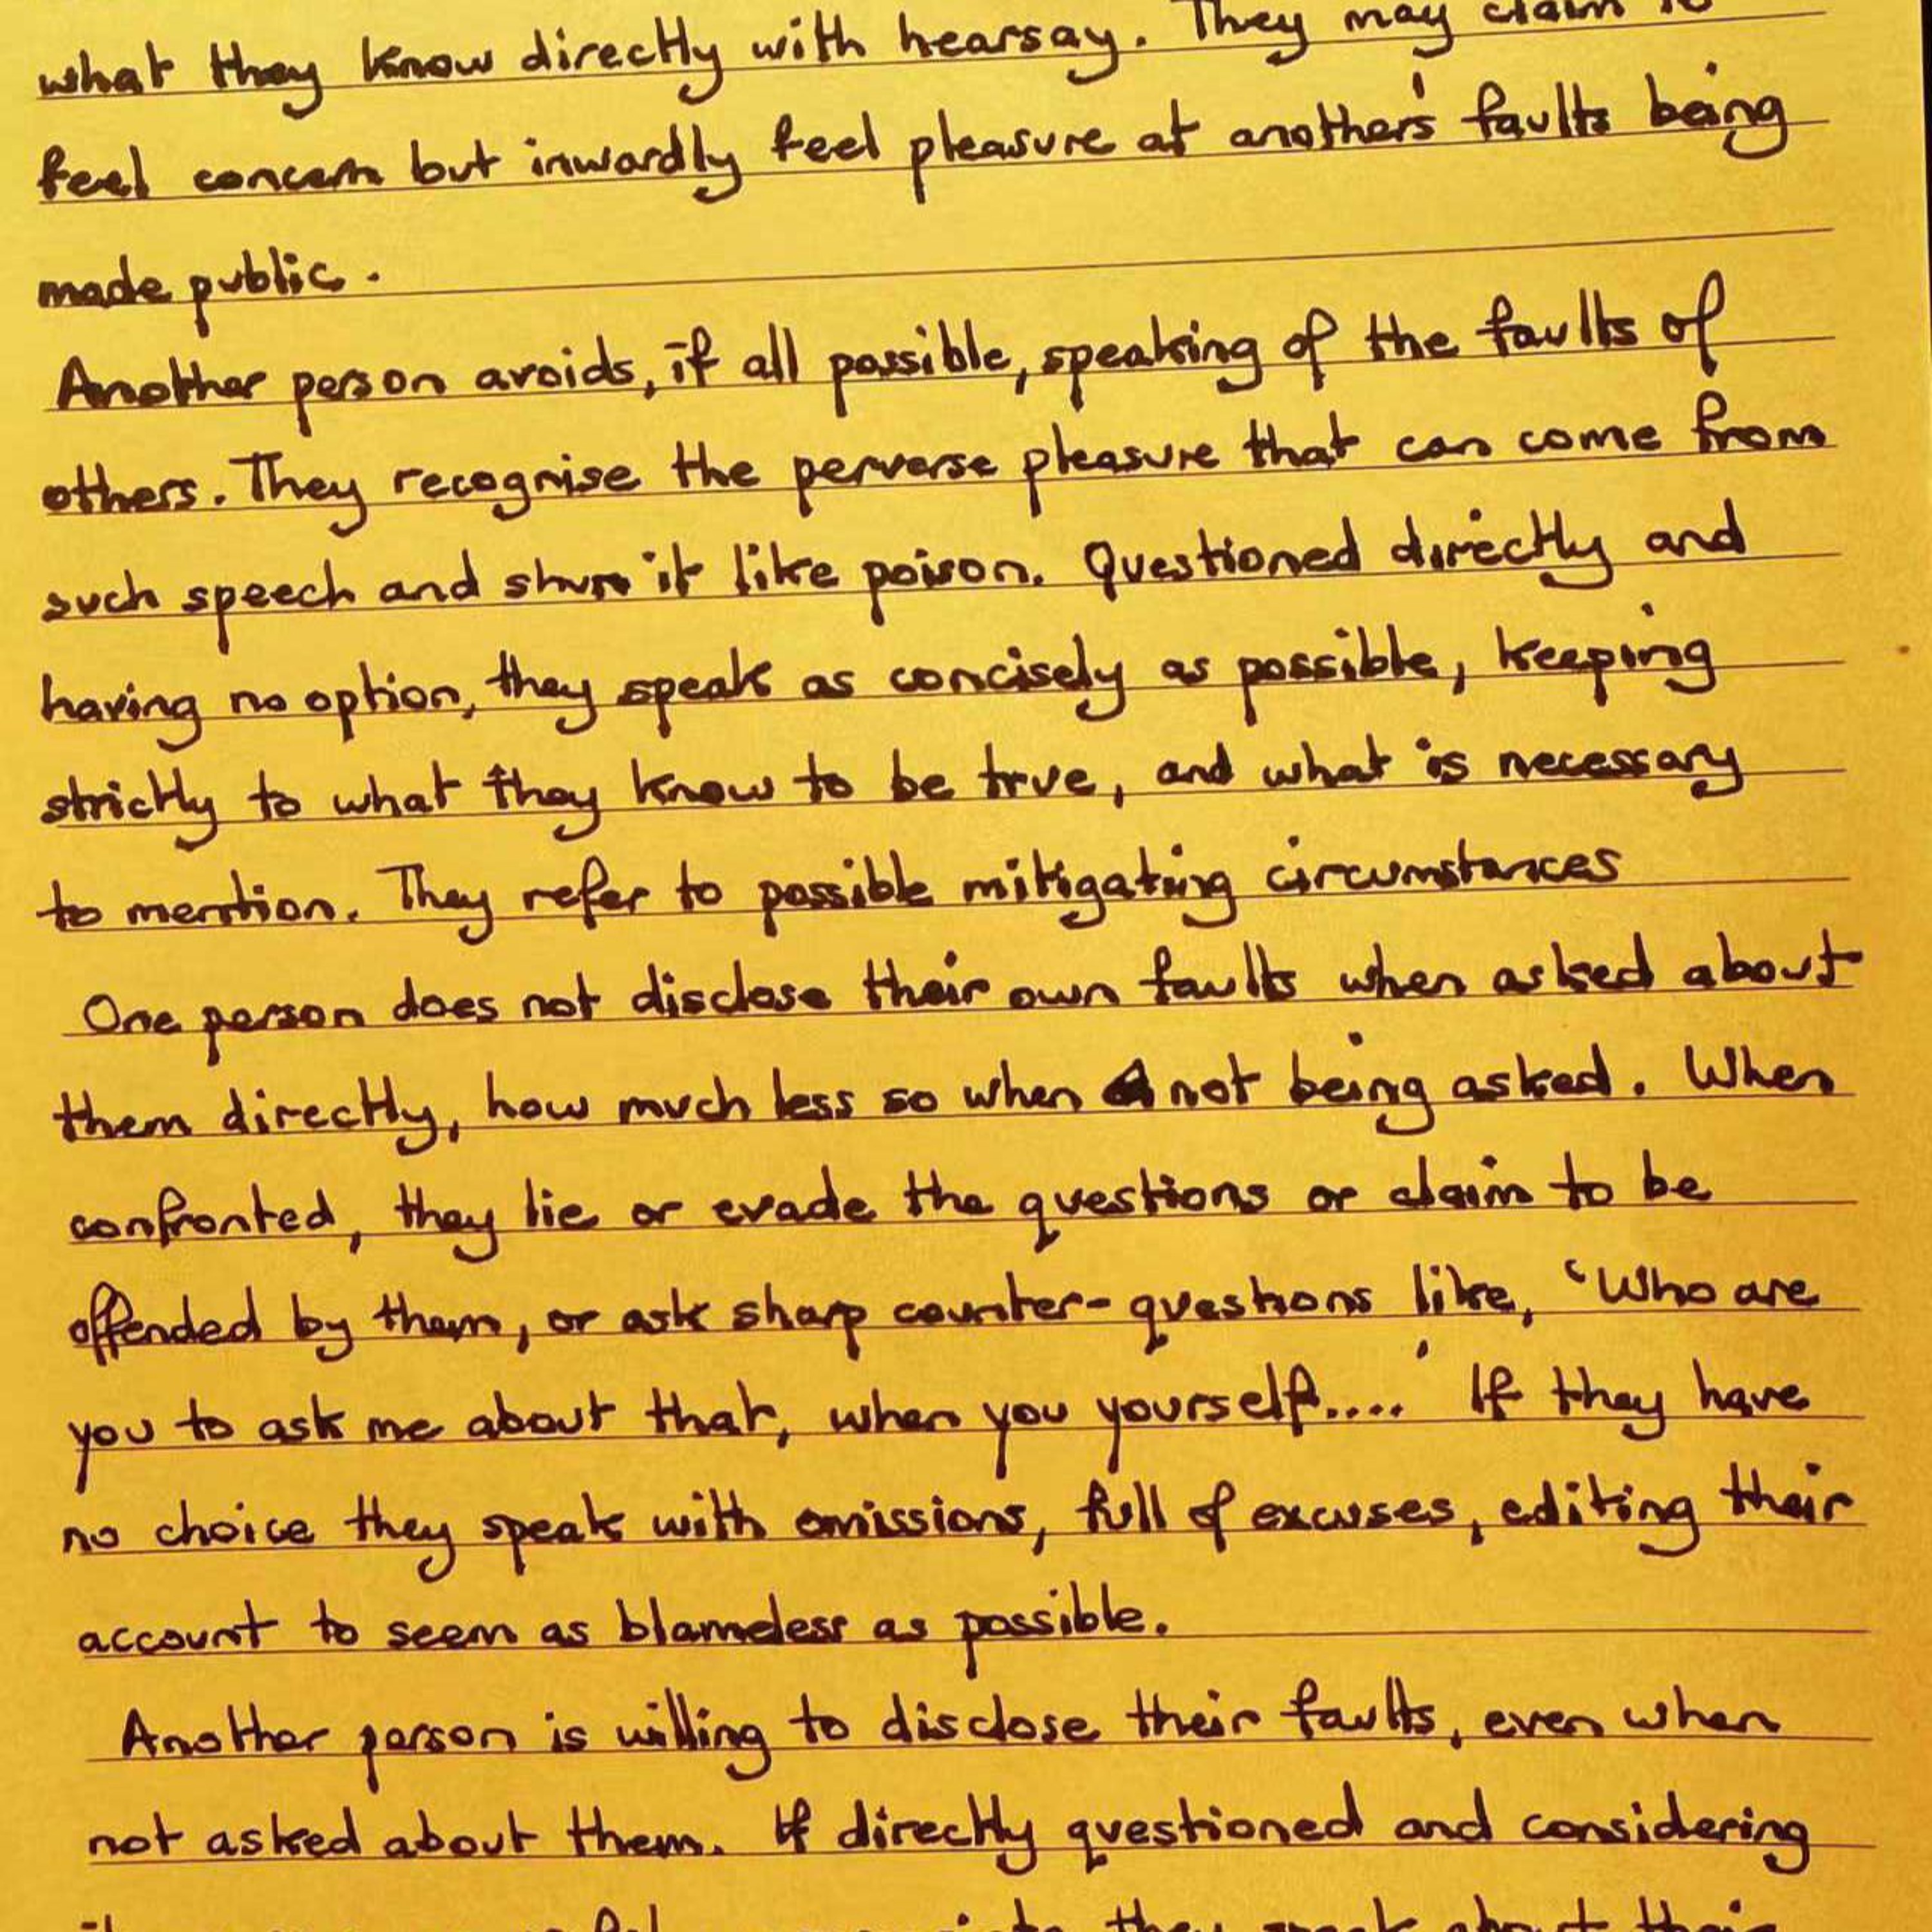 what they know directly with hearsay. They may claim to
feel concern but inwardly feel pleasure at another's faults being
made public.
Another person avoids, if all possible, speaking of the faults of
others. They recognise the perverse pleasure that can come from
such speech and shun it like poison. Questioned directly and
having no option, they speak as concisely as possible, keeping
strictly to what they know to be true, and what is necessary
to mention. They refer to possible mitigating circumstances
One person does not disclose their own faults when asked about
them directly, how much less so when not being asked. When
confronted, they lie or evade the questions or claim to be
offended by them, or ask sharp counter-questions like, 'Who are
you to ask me about that, when you yourself....' If they have
no choice they speak with omissions, full of excuses, editing their
account to seem as blameless as possible.
Another person is willing to disclose their faults, even when
not asked about them. If directly questioned and considering
they speak about their